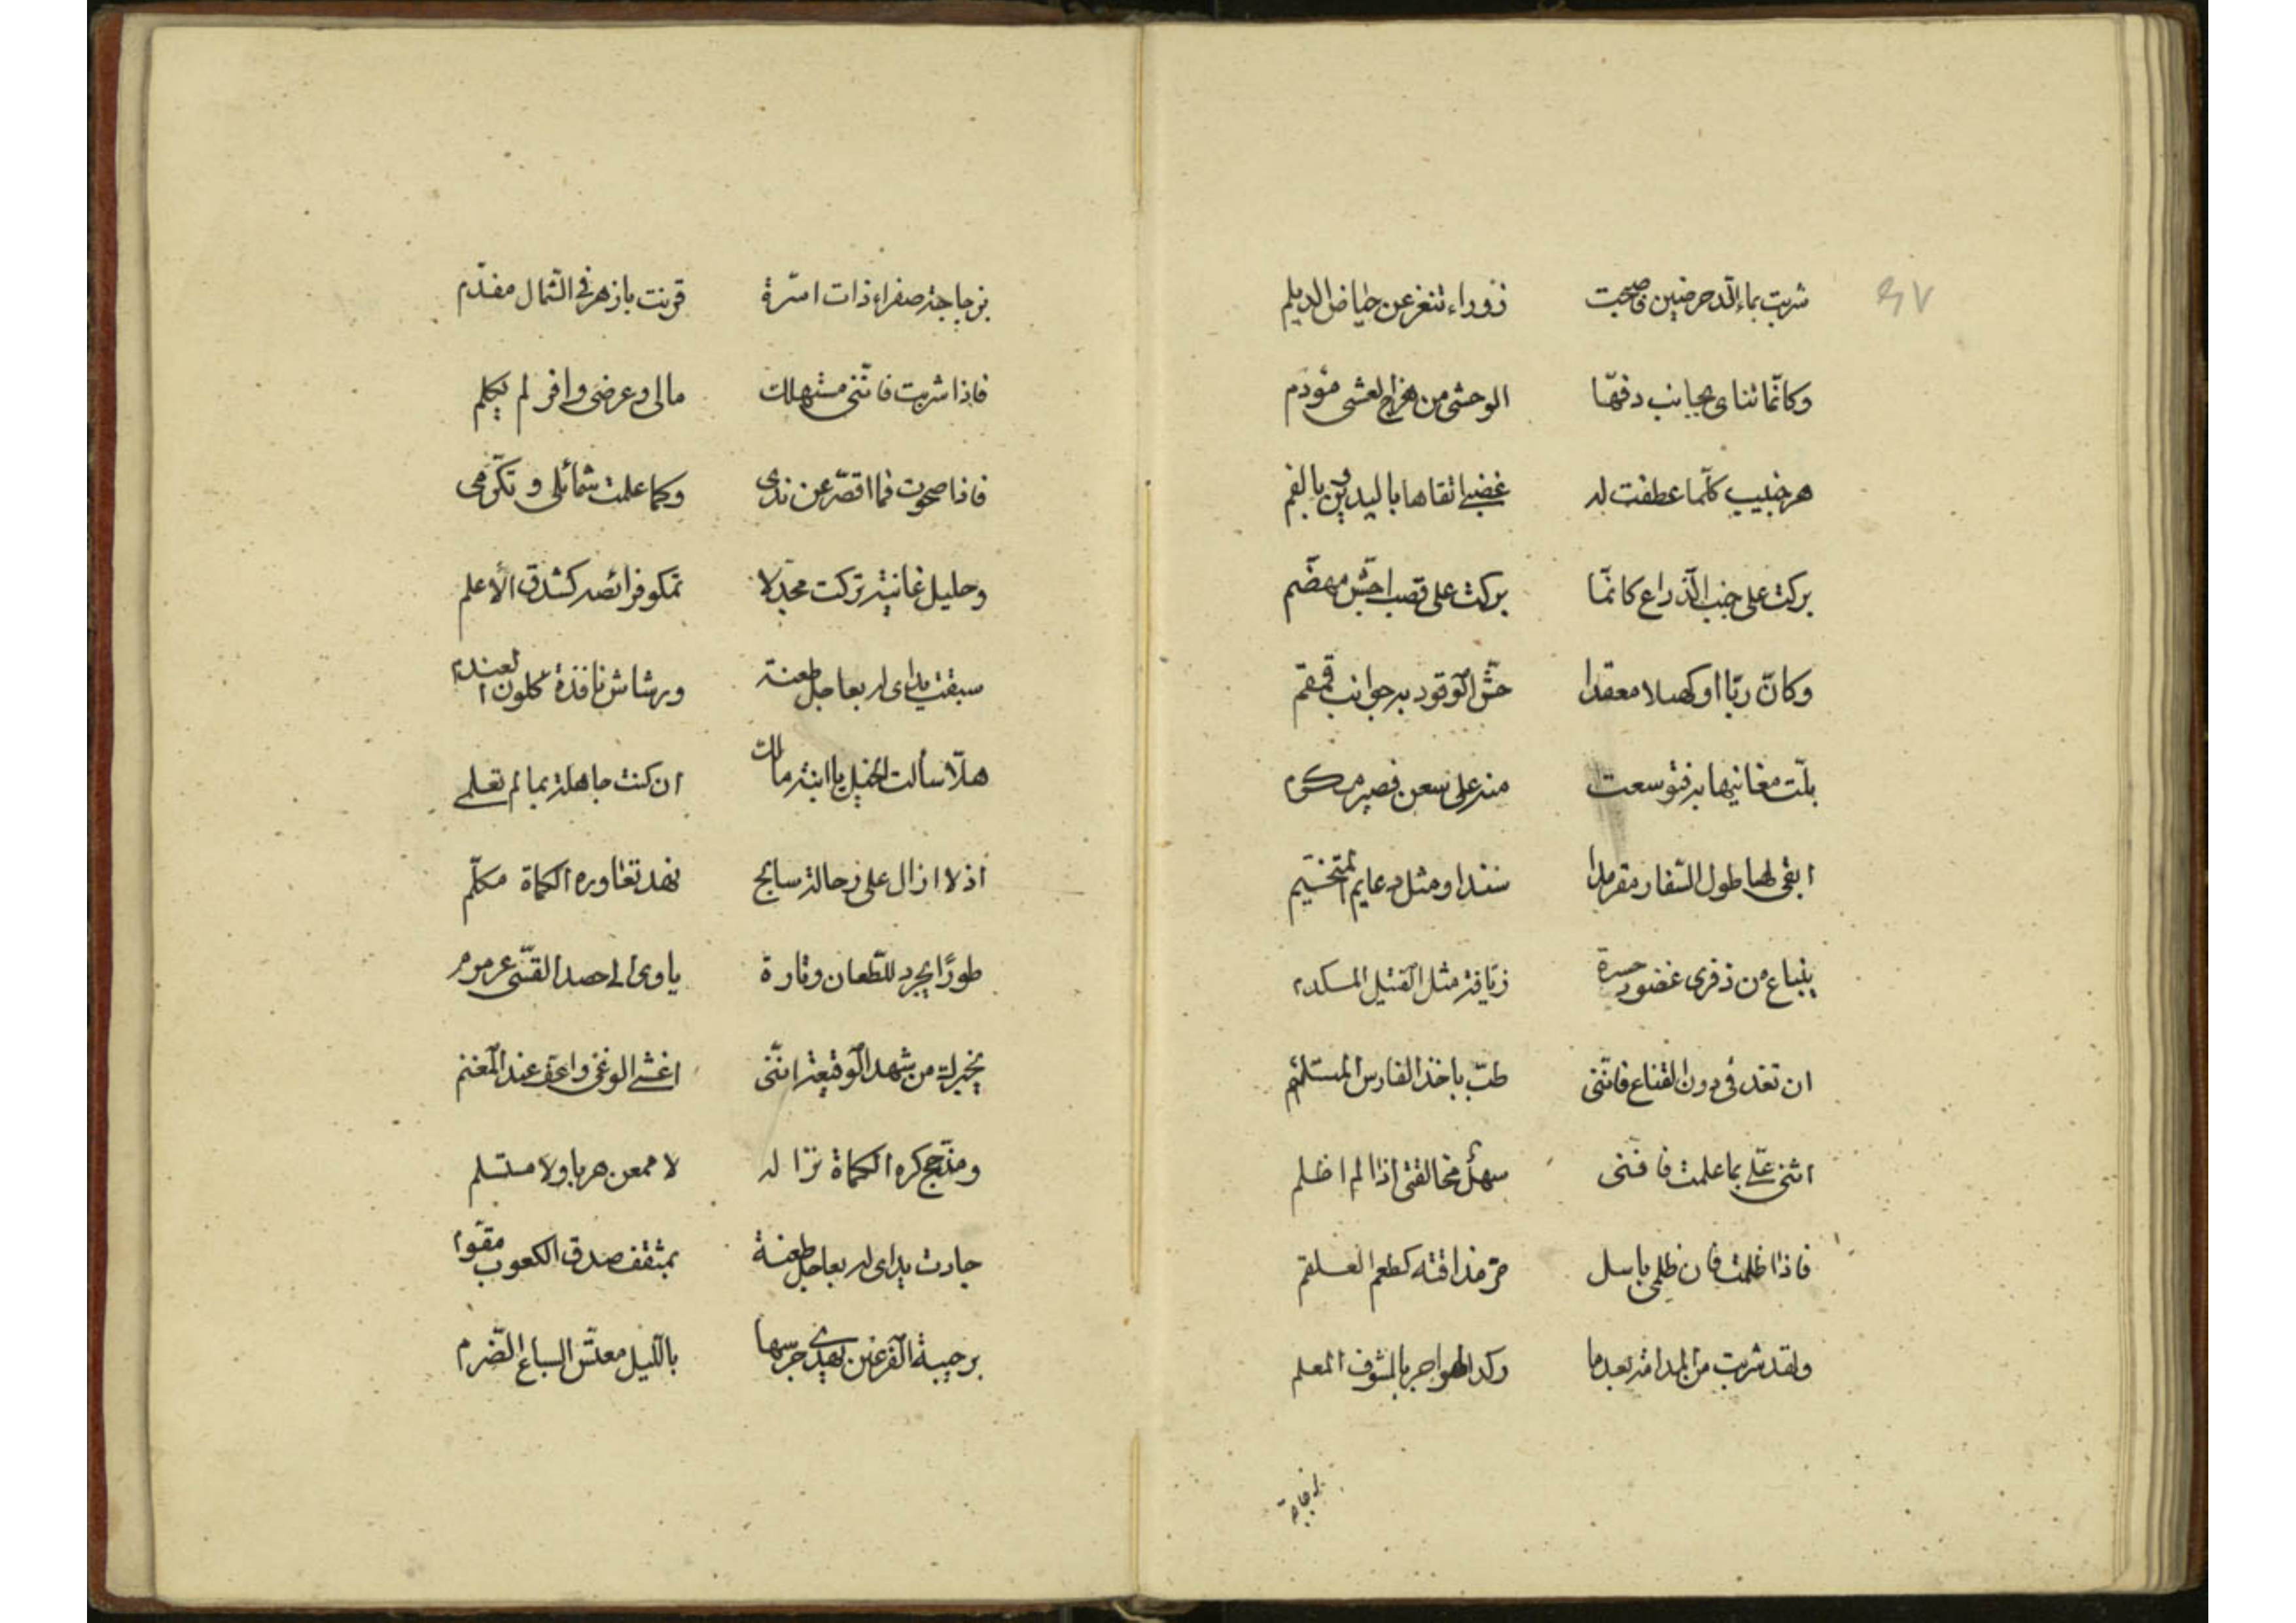 شربت بماء الدّحرضين فاصبحت زوراء تنفر عن حياض الديلم
وكانّما تناى بجانب دفّها الوحشى من هزج العشى مؤوم
هر جنيب كلّما عطفت له غضبى اتقاها باليدين وبالفم
بركت على جنب الذّراع كانّما بركت على قصب اجشّ مهضّم
وكانّ ربّا او كحيلا معقدا حشّ الوقود به جوانب قمقم
بلّت مغانيها به فتوسعت منه على سعن قصير مكرم
ابقى لها طول السّفار مقرمدا سندا ومثل دعايم المتخيّم
ينباع من ذفرى غضوب جسرة زيّافة مثل الفنيق المكدم
ان تغد فى دون القناع فانّنى طبّ باخذ الفارس المستلئم
اثنى علىّ بما علمت فانّنى سهل مخالقتى اذا لم اظلم
فاذا ظلمت فان ظلمى باسل مرّ مذاقته كطعم العلقم
ولقد شربت من المدامة بعدما ركد الهواجر بالمشوف المعلم
بزجاجة
بزجاجة صفراء ذات اسّرة قرنت بازهر فى الشّمال مفدّم
فاذا شربت فانّنى مستهلك مالى وعرضى وافر لم يكلم
فاذا صحوت فما اقصّر عن ندى وكما علمت شمائلى وتكّرمى
وحليل غانية تركت مجدلا تمكو فرائصه كشدق الأعلم
سبقت يداى له بعاجل طعنة ورشاش نافذة كلون العندم
هلّا سألت الخيل يا ابنة مالك ان كنت جاهلة بما لم تعلمى
اذ لا ازال على رحالة سابح نهد تعاوره الكماة مكلّم
طورًا يجرد للطّعان وتارة ياوى الى حصد القسّى عرمرم
يخبرك من شهد الوقيعة انّنى اغشى الوغى واعف عند المغنم
ومدّجج كره الكماة نزاله لا ممعن هربا ولا مستسلم
جادت يداى له بعاجل طعنة بمثقف صدق الكعوب مقّوم
برحيبة الفرغين يهدى جرسها بالليل معتسّ السباع الضّرم
٣٧